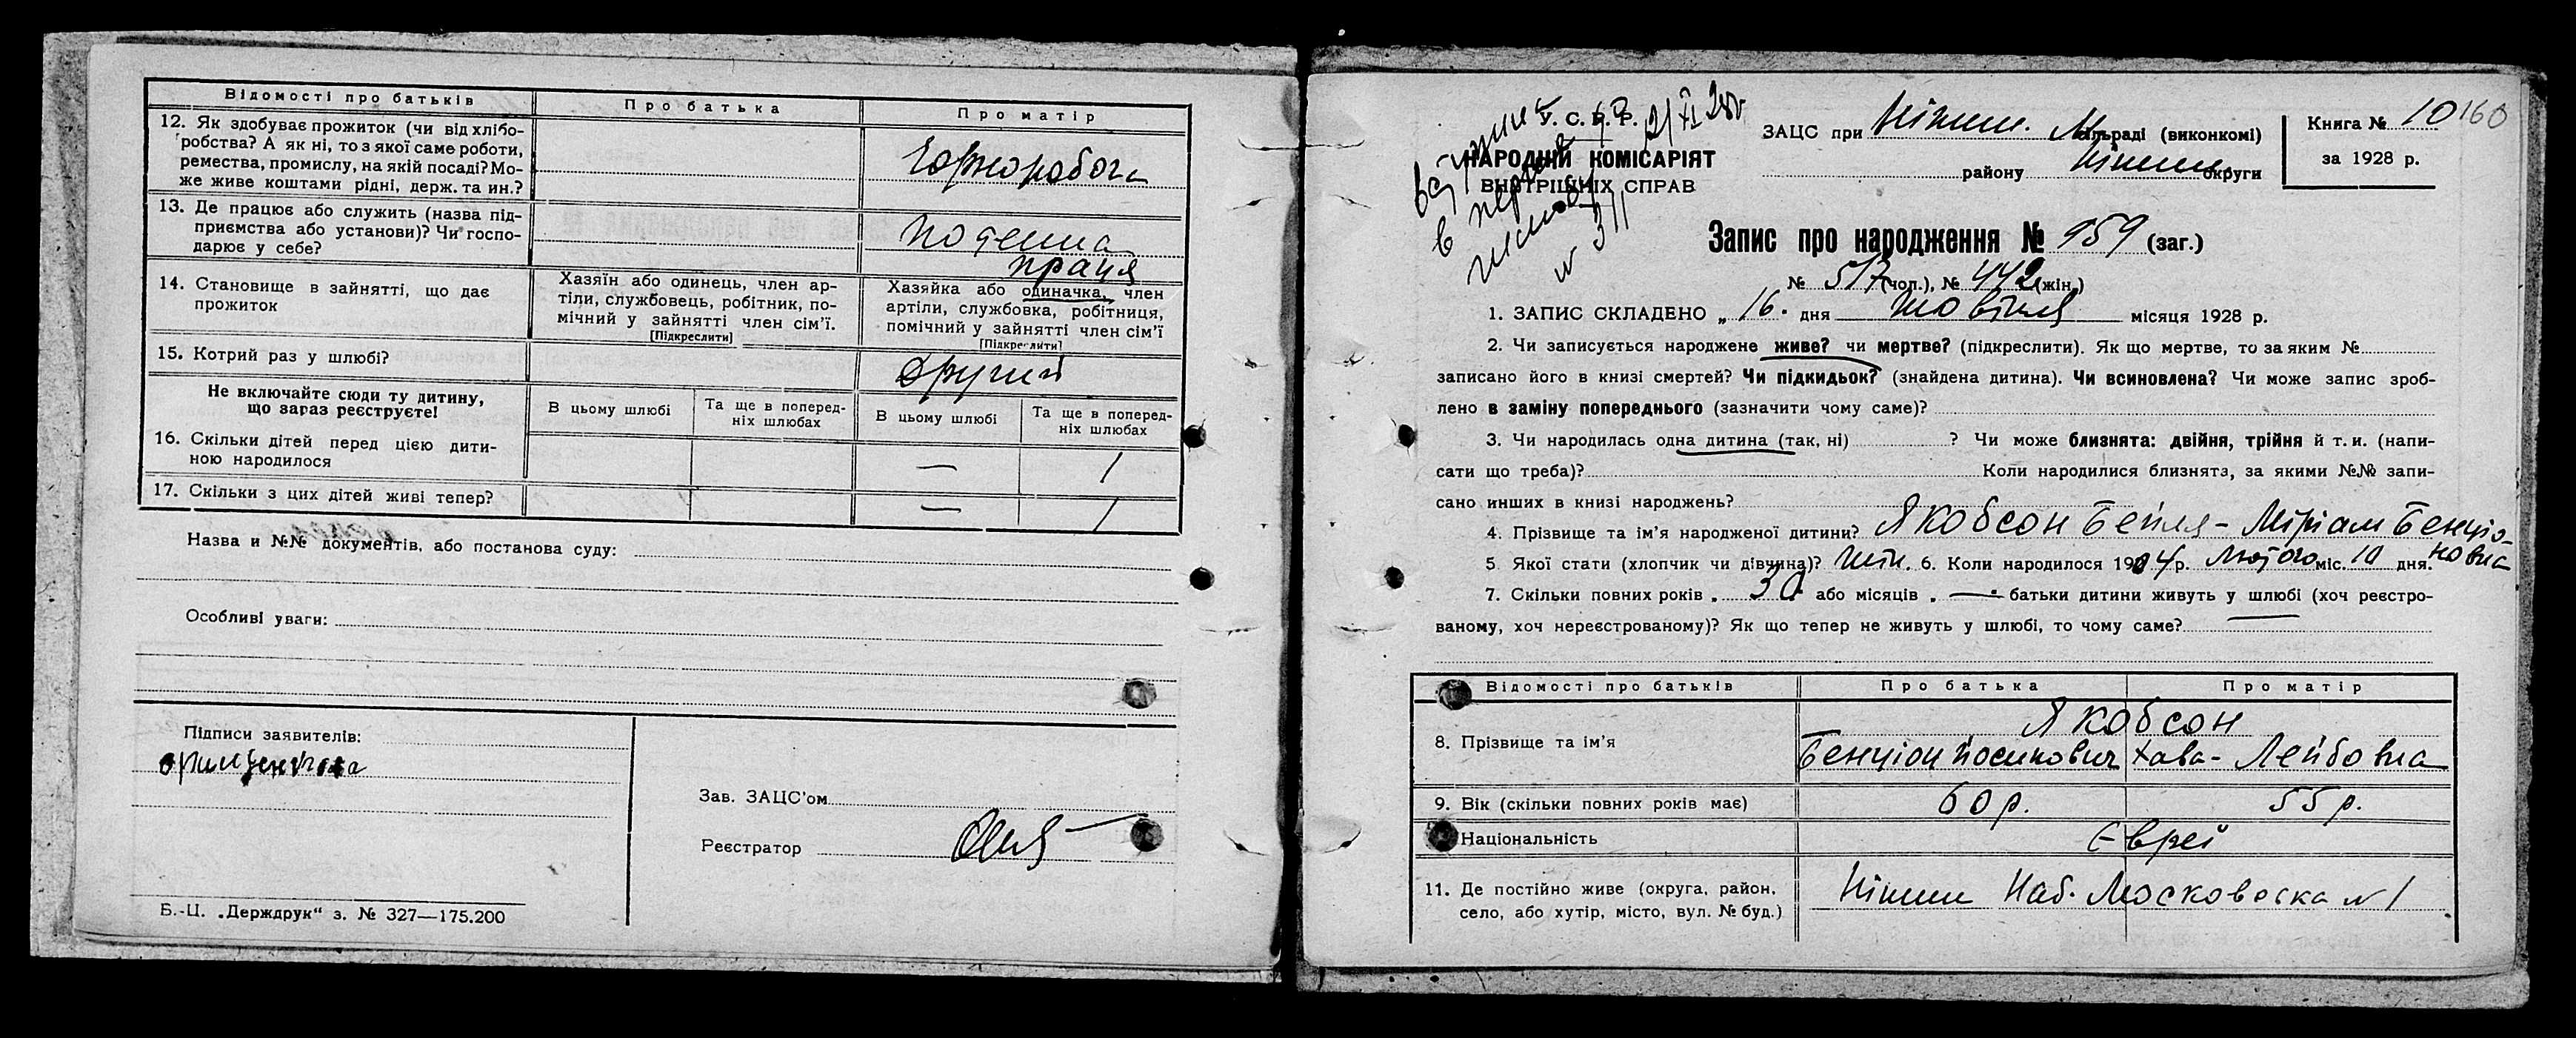 Відомості про батьків
Про батька
Про матір
12. Як здобуває прожиток (чи від хлібо-
робства? А як ні, то з якої саме роботи,
ремества, промислу, на якій посаді? Мо-
же живе коштами рідні, держ. та ин.?
Чорноробоча
13. Де працює або служить (назва під-
приємства або установи)? Чи госпо-
дарює у себе?
Поденна
праця
14. Становище в зайнятті, що дає
прожиток
Хазяїн або одинець, член ар-
тілі, службовець, робітник, по-
мічний у зайнятті член сім'ї.
[Підкреслити]
Хазяйка або одиначка, член
артілі, службовка, робітниця,
помічний у зайнятті член сім'ї
[Підкреслити]
15. Котрий раз у шлюбі?
Другий
Не включайте сюди ту дитину,
що зараз реєструєте!
В цьому шлюбі
Та ще в поперед-
ніх шлюбах
В цьому шлюбі
Та ще в поперед-
ніх шлюбах
16. Скільки дітей перед цією дити-
ною народилося
— 1
17. Скільки з цих дітей живі тепер?
— 1
Назва и №№ документів, або постанова суду:
Особливі уваги:
Підписи заявителів:
Зав. ЗАЦС'ом
Реєстратор
Б.-Ц. „Держдрук“ з. № 327—175.200
У. С. Р. Р.
НАРОДНІЙ КОМІСАРІЯТ
ВНУТРІШНІХ СПРАВ
ЗАЦС при Ніжин. М сільраді (виконкомі)
району Ніжин округи
Книга № 10 160
за 1928 р.
Запис про народження № 959 (заг.)
№ 517 (чол.), № 442 (жін.)
1. ЗАПИС СКЛАДЕНО „ 16. дня Жовтня місяця 1928 р.
2. Чи записується народжене живе? чи мертве? (підкреслити). Як що мертве, то за яким №
записано його в книзі смертей? Чи підкидьок? (знайдена дитина). Чи всиновлена? Чи може запис зроб-
лено в заміну попереднього (зазначити чому саме)?
3. Чи народилась одна дитина (так, ні) ? Чи може близнята: двійня, трійня й т. и. (напи-
сати що треба)? Коли народилися близнята, за якими №№ запи-
сано инших в книзі народжень?
4. Прізвище та ім'я народженої дитини? Якобсон Бейля-Міріам Бенціо-
новна
5. Якої стати (хлопчик чи дівчина)? жін. 6. Коли народилося 1904 р. Лютого міс. 10 дня.
7. Скільки повних років „ 30 або місяців „ — батьки дитини живуть у шлюбі (хоч реєстро-
ваному, хоч нереєстрованому)? Як що тепер не живуть у шлюбі, то чому саме?
Відомості про батьків
Про батька
Про матір
8. Прізвище та ім'я
Якобсон
Бенціон Йосипович Хава-Лейбовна
9. Вік (скільки повних років має)
60 р. 55 р.
Національність
Євреї
11. Де постійно живе (округа, район,
село, або хутір, місто, вул. № буд.)
Ніжин Наб. Московська № 1